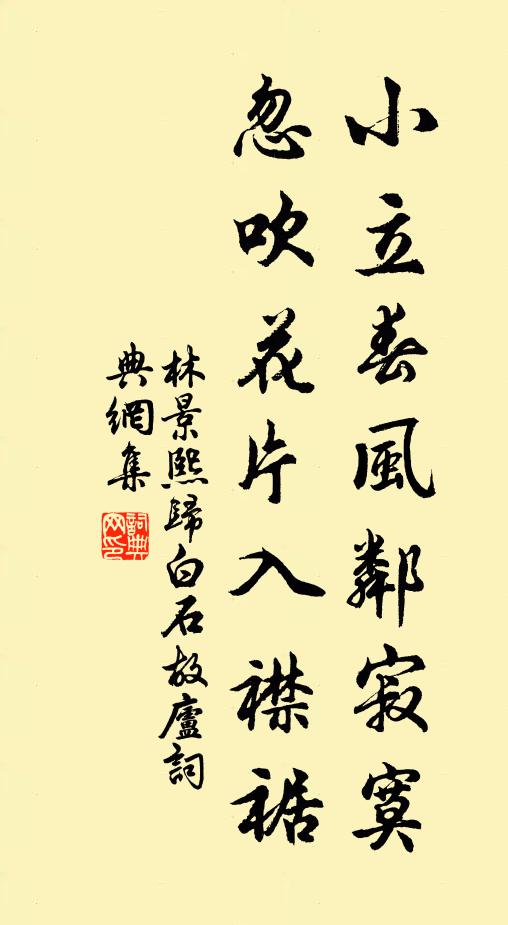 小立春風鄰寂寞
忽吹花片入襟裾
林景熙歸白石故廬詞
典網集
詞典
网印